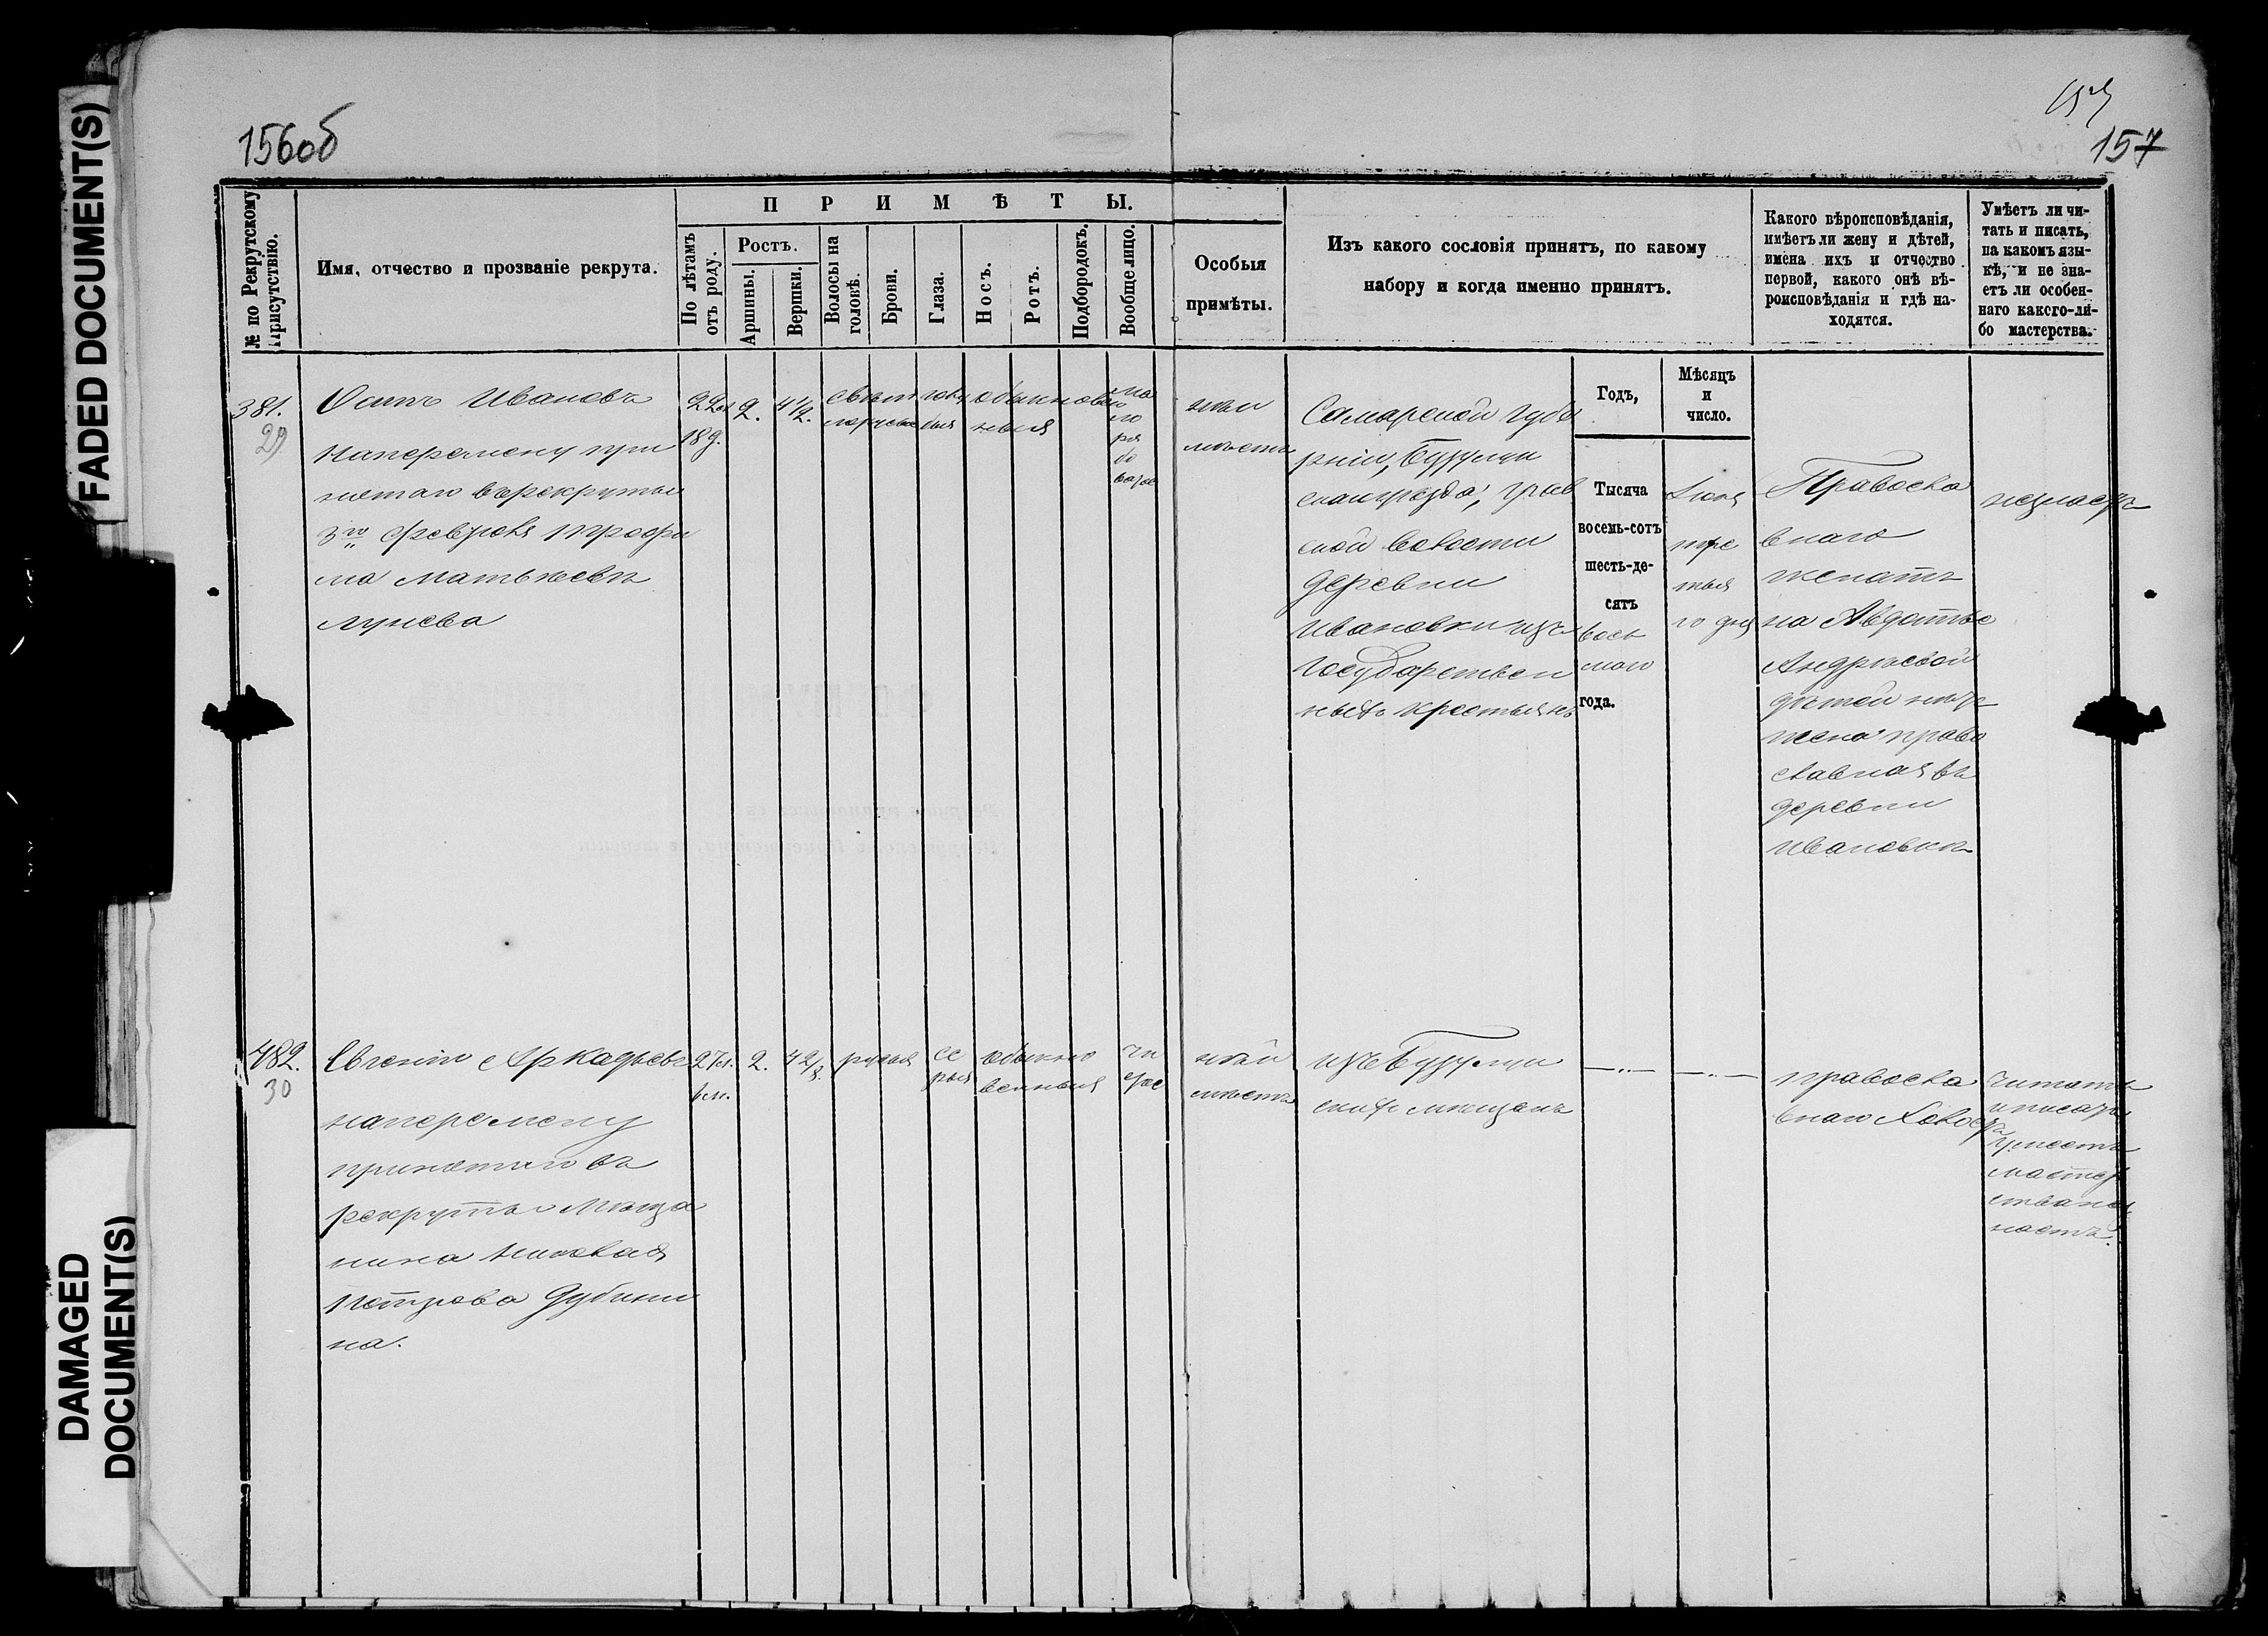 FADED DOCUMENT(S)
DAMAGED
DOCUMENT(S)
156об
157
№ по Рекрутскому
Присутствію.
Имя, отчество и прозваніе рекрута.
ПРИМѢТЫ.
По лѣтамъ
отъ роду.
Ростъ.
Аршины.
Вершки.
Волосы на
головѣ.
Брови.
Глаза.
Носъ.
Ротъ.
Подбородокъ.
Вообще лицо.
Особыя
примѣты.
Изъ какого сословія принятъ, по какому
набору и когда именно принятъ.
Какого вѣроисповѣданія,
имѣетъ ли жену и дѣтей,
имена ихъ и отчество
первой, какого онѣ вѣ-
роисповѣданія и гдѣ на-
ходятся.
Умѣетъ ли чи-
тать и писать,
на какомъ язы-
кѣ, и не зна-
етъ ли особен-
наго какого-ли-
бо мастерства.
Годъ,
Мѣсяцъ
и
число.
381.
29
Осипъ Ивановъ
наперемену при
нятаго въ рекруты
3го Февраля Трофи
ма Матвѣева
Лунева
2.
4 1/2.
свѣт
лорусые
голу
бые
обыкнове
нныя
неи
мѣетъ
Самарской губе
рніи, Бузулук
скаго уезда,
ской Волости
деревни
Ивановки изъ
государствен
ныхъ крестьянъ
Тысяча
восемь-сотъ
шесть-де-
сятъ
вось
мого
года.
Іюня
тре
тья
го дня
Правосла
внаго
женатъ
на Авдотье
Андреевой
дѣтей нѣтъ
жена право
славная въ
деревни
Ивановки
незнаетъ
482.
30
Евгеній Аркадьевъ
наперемену
принятаго въ
рекруты Мѣща
нина Николая
Петрова Дубини
на.
2.
4 2/8.
русыя
се
рыя
обыкно
венныя
чи
стое
неи
мѣетъ
изъ Бузулук
скихъ мѣщанъ
правосла
внаго Холостъ
читать
и писать
умѣетъ
мастер
ства не